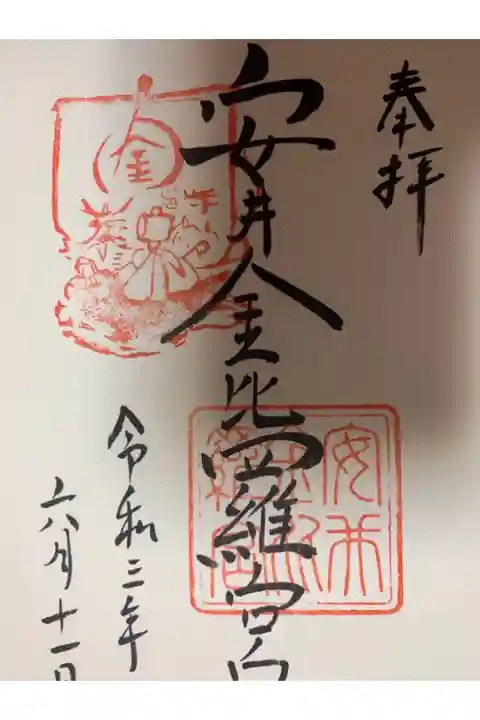 奉拝
安井金比羅宮
令和三年
六月十一日
金